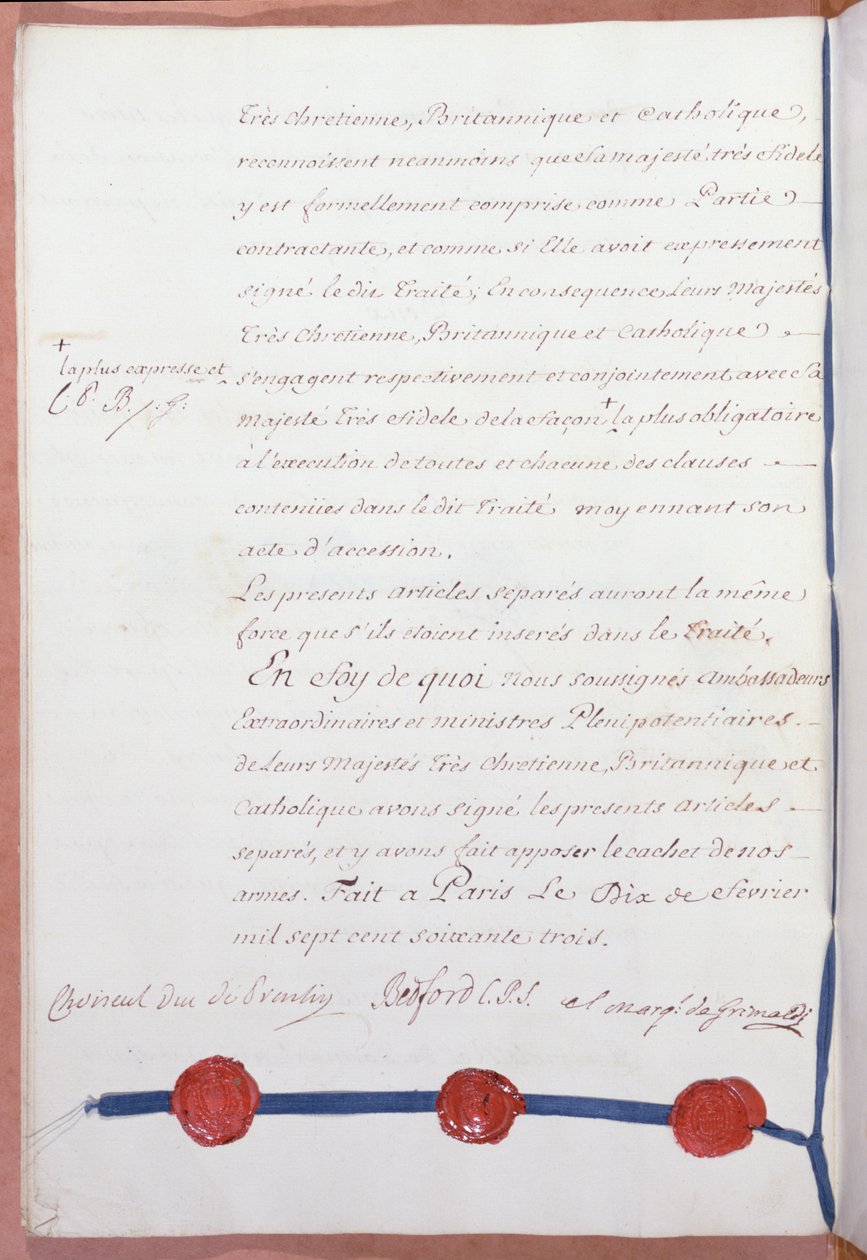 Très Chretienne, Britannique et Catholique,
reconnoissent neanmoins que Sa majesté très Fidele
y est formellement comprise comme Partie
contractante, et comme si Elle avoit expressement
signé le dit Traité; En consequence Leurs Majestés
Très Chretienne, Britannique et Catholique
+
la plus expresse et
C. P. B. /. G:
s'engagent respectivement et conjointement avec Sa
Majesté Très Fidele de la Façon + la plus obligatoire
à l'execution de toutes et chacune des clauses
contenües dans le dit Traité moyennant son
acte d'accession.
Les presents articles separés auront la même
force que s'ils etoient inserés dans le Traité.
En Foy de quoi nous soussignés Ambassadeurs
Extraordinaires et ministres Plenipotentiaires
de Leurs Majestés Très Chretienne, Britannique et
Catholique avons signé les presents articles
separés, et y avons fait apposer le cachet de nos
armes. Fait a Paris Le Dix de Fevrier
mil sept cent soixante trois.
Choiseul Duc de Praslin Bedford C.P.S. el Marq.s de Grimaldi